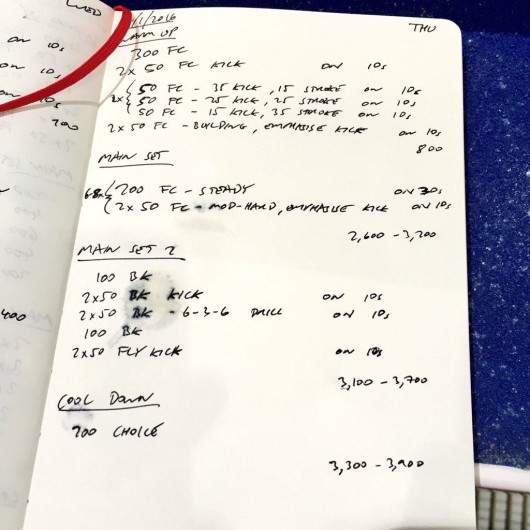 WED
on 10s
on 10s
on 10s
on 10s
700
400
/1/2016
THU
WARM UP
300 FC
2x 50 FC KICK on 10s
2x { 50 FC - 35 KICK, 15 STROKE on 10s
50 FC - 25 KICK, 25 STROKE on 10s
50 FC - 15 KICK, 35 STROKE on 10s
2x50 FC - BUILDING, EMPHASISE KICK on 10s
800
MAIN SET
6-8x { 200 FC - STEADY on 30s
2x50 FC - MOD-HARD, EMPHASISE KICK on 10s
2,600 - 3,200
MAIN SET 2
100 BK
2x50 BK KICK on 10s
2x50 BK - 6-3-6 DRILL on 10s
100 BK
2x50 FLY KICK on 10s
3,100 - 3,700
COOL DOWN
200 CHOICE
3,300 - 3,900